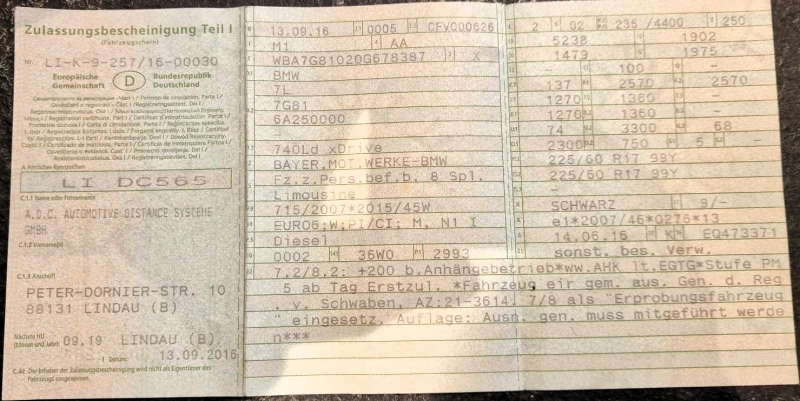 Zulassungsbescheinigung Teil I
(Fahrzeugschein)
Nr. LI-K-9-257/16-00030
Europäische Gemeinschaft D Bundesrepublik Deutschland
LI DC565
C.1.1 Name oder Firmenname
A.D.C. AUTOMOTIVE DISTANCE SYSTEMS
GMBH
C.1.2 Vorname(n)
C.1.3 Anschrift
PETER-DORNIER-STR. 10
88131 LINDAU (B)
Nächste HU
(Monat und Jahr) 09.19 LINDAU (B),
I Datum: 13.09.2016
C.4c Der Inhaber der Zulassungsbescheinigung wird nicht als Eigentümer des Fahrzeugs ausgewiesen.
13.09.16 0005 CFV000626
M1 AA
WBA7G81020G678387 X
BMW
7L
7G81
6A250000
-
740Ld xDrive
BAYER.MOT.WERKE-BMW
Fz.z.Pers.bef.b. 8 Spl.
Limousine
715/2007*2015/45W
EURO6;W;PI/CI; M, N1 I
Diesel
0002 36W0 2993
2 02 235 /4400 250
5238 1902
1479 1975
- 100 -
137 2570 2570
1270 1360 -
1270 1360 -
74 3300 68
2300 750 5 -
225/60 R17 99Y
225/60 R17 99Y
-
SCHWARZ 9/-
e1*2007/46*0276*13
14.06.16 K EQ473371
sonst. bes. Verw.
7.2/8.2: +200 b.Anhängebetrieb*ww.AHK lt.EGTG*Stufe PM
5 ab Tag Erstzul. *Fahrzeug eir gem. aus. Gen. d. Reg
. v. Schwaben, AZ:21-3614. 7/8 als "Erprobungsfahrzeug
" eingesetz. Auflage: Ausn. gen. muss mitgeführt werde
n***